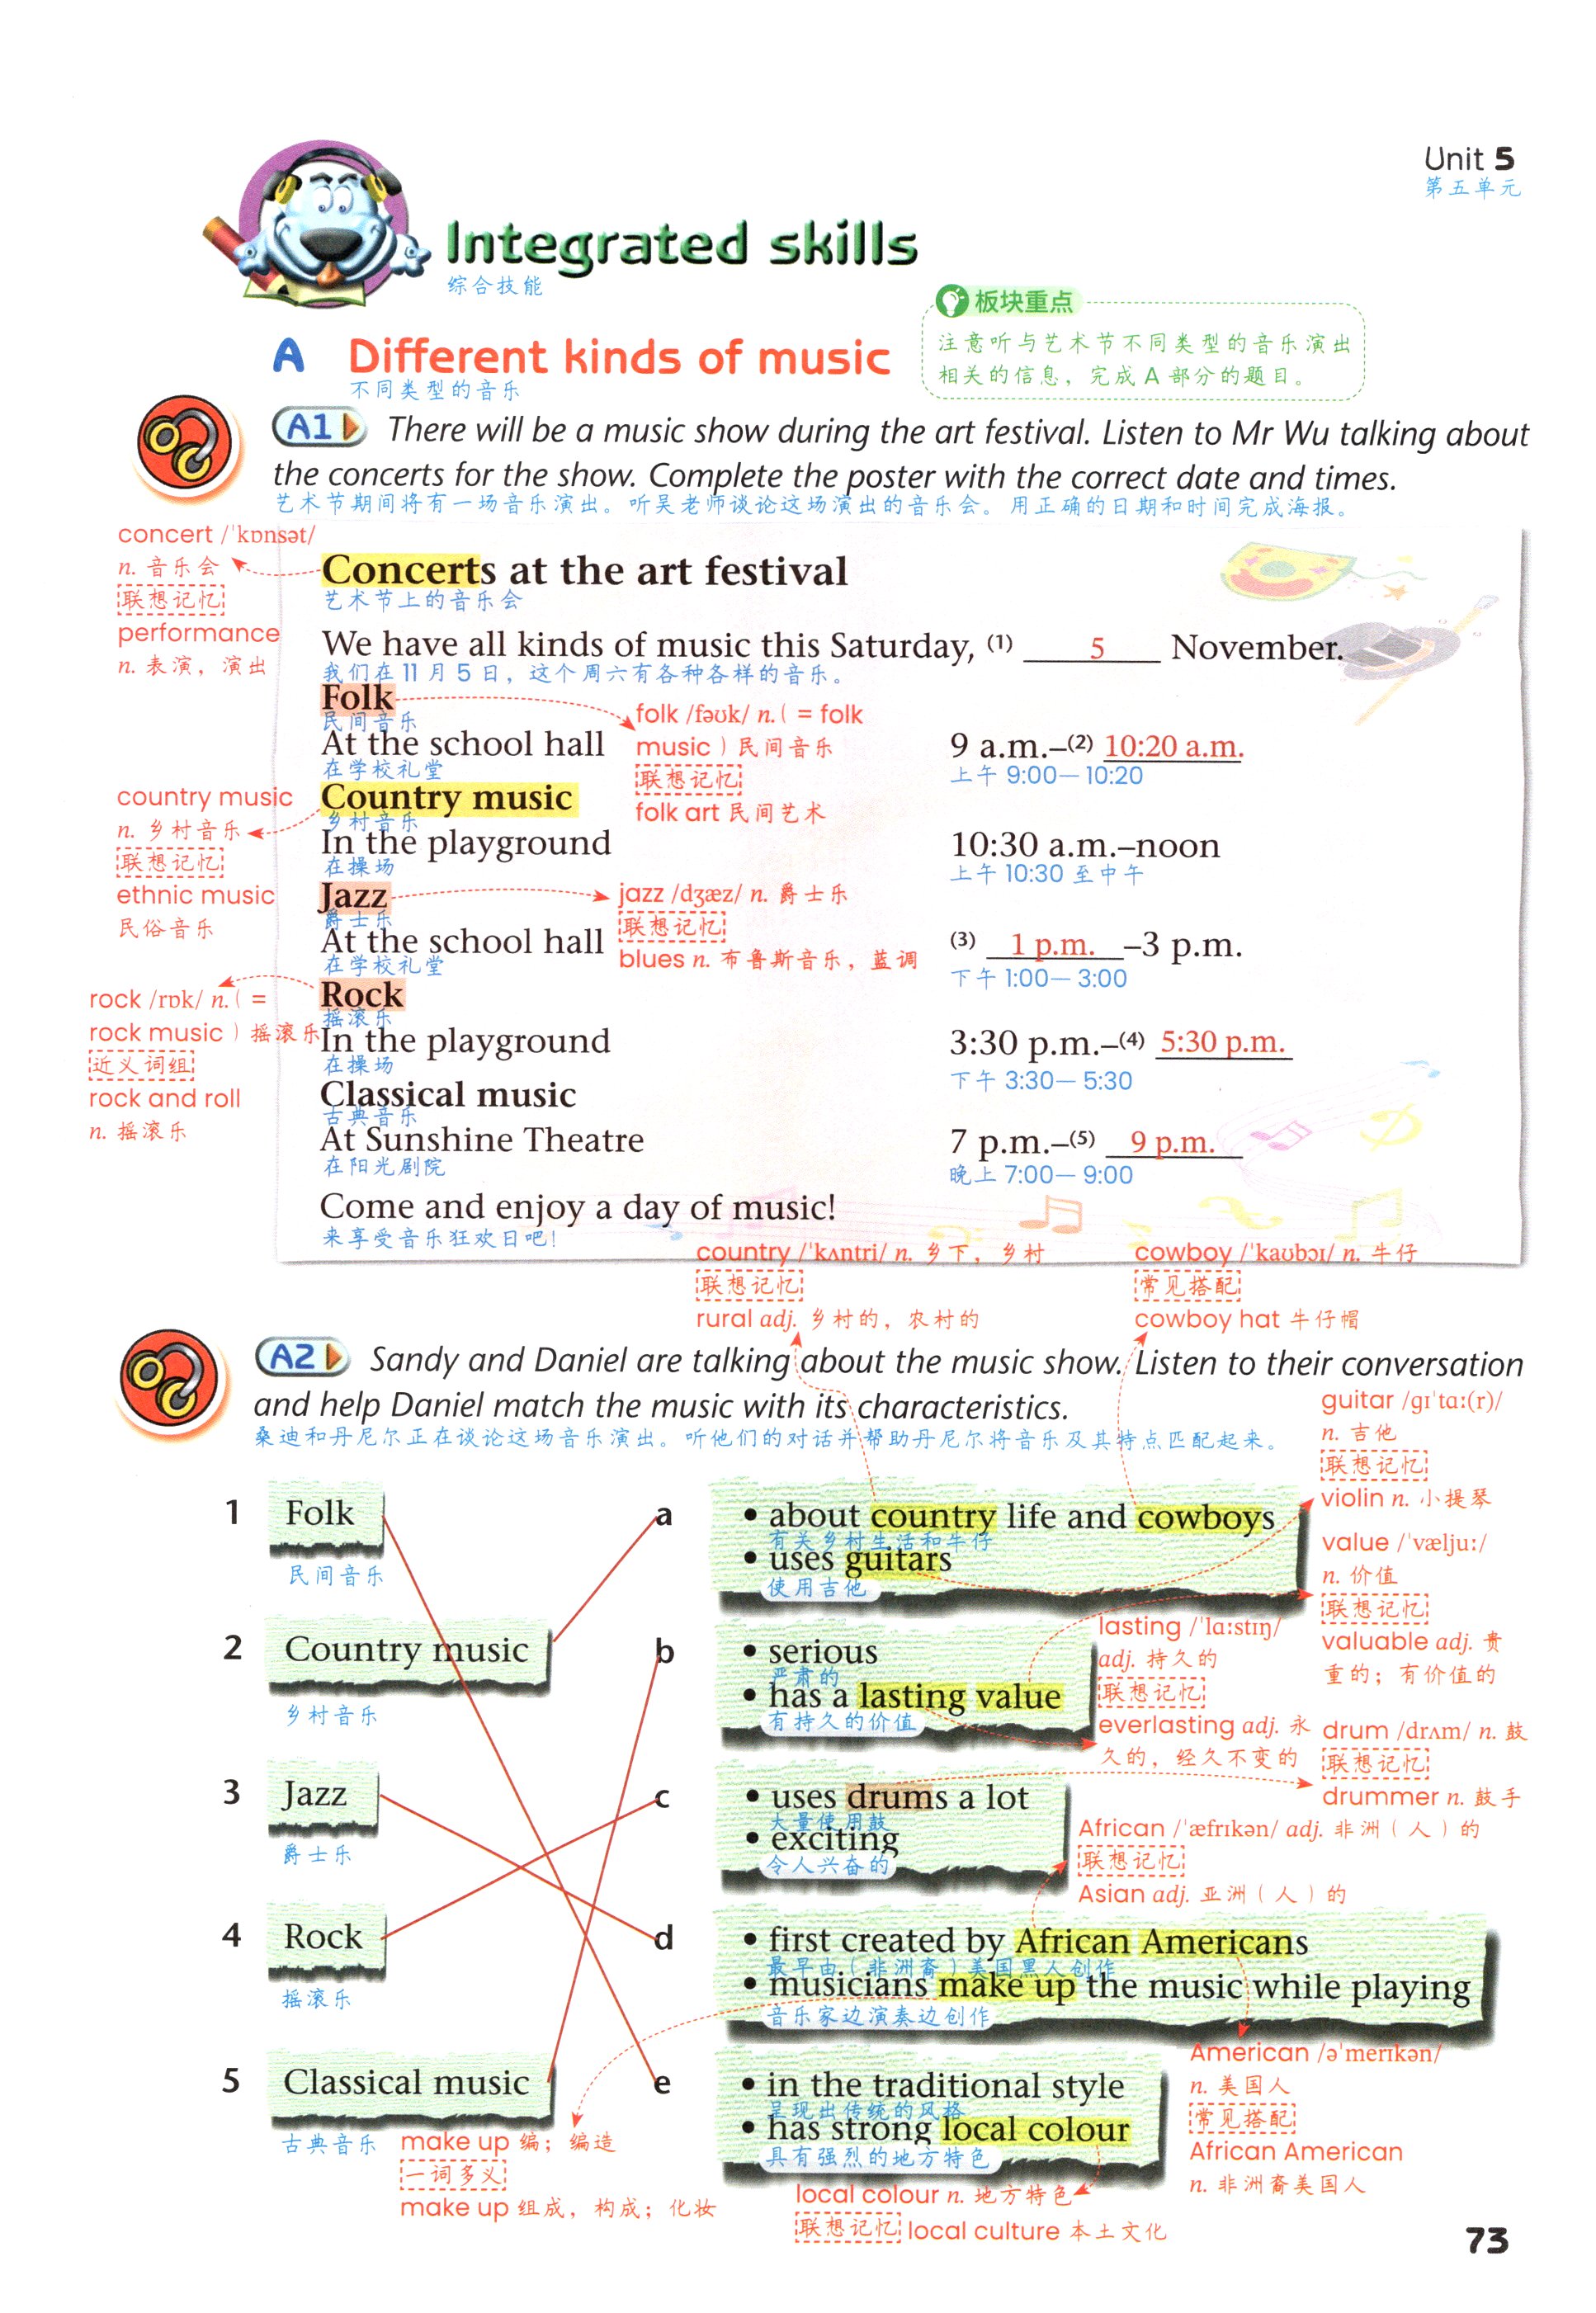 Unit 5
第五单元
Integrated skills
综合技能
板块重点
注意听与艺术节不同类型的音乐演出
相关的信息，完成 A 部分的题目。
A Different kinds of music
不同类型的音乐
A1 There will be a music show during the art festival. Listen to Mr Wu talking about
the concerts for the show. Complete the poster with the correct date and times.
艺术节期间将有一场音乐演出。听吴老师谈论这场演出的音乐会。用正确的日期和时间完成海报。
concert /ˈkɒnsət/
n. 音乐会
联想记忆
performance
n. 表演，演出
Concerts at the art festival
艺术节上的音乐会
We have all kinds of music this Saturday, (1) 5 November.
我们在 11 月 5 日，这个周六有各种各样的音乐。
Folk
民间音乐
folk /fəʊk/ n.( = folk
music ) 民间音乐
联想记忆
folk art 民间艺术
At the school hall 9 a.m.–(2) 10:20 a.m.
在学校礼堂 上午 9:00—10:20
country music
n. 乡村音乐
联想记忆
ethnic music
民俗音乐
Country music
乡村音乐
In the playground 10:30 a.m.–noon
在操场 上午 10:30 至中午
Jazz
爵士乐
jazz /dʒæz/ n. 爵士乐
联想记忆
blues n. 布鲁斯音乐，蓝调
At the school hall (3) 1 p.m. –3 p.m.
在学校礼堂 下午 1:00—3:00
rock /rɒk/ n.( =
rock music ) 摇滚乐
近义词组
rock and roll
n. 摇滚乐
Rock
摇滚乐
In the playground 3:30 p.m.–(4) 5:30 p.m.
在操场 下午 3:30—5:30
Classical music
古典音乐
At Sunshine Theatre 7 p.m.–(5) 9 p.m.
在阳光剧院 晚上 7:00—9:00
Come and enjoy a day of music!
来享受音乐狂欢日吧！
country /ˈkʌntri/ n. 乡下，乡村
联想记忆
rural adj. 乡村的，农村的
cowboy /ˈkaʊbɔɪ/ n. 牛仔
常见搭配
cowboy hat 牛仔帽
A2 Sandy and Daniel are talking about the music show. Listen to their conversation
and help Daniel match the music with its characteristics.
桑迪和丹尼尔正在谈论这场音乐演出。听他们的对话并帮助丹尼尔将音乐及其特点匹配起来。
guitar /ɡɪˈtɑː(r)/
n. 吉他
联想记忆
violin n. 小提琴
1 Folk
民间音乐
a • about country life and cowboys
有关乡村生活和牛仔
• uses guitars
使用吉他
value /ˈvæljuː/
n. 价值
联想记忆
valuable adj. 贵
重的；有价值的
2 Country music
乡村音乐
b • serious
严肃的
• has a lasting value
有持久的价值
lasting /ˈlɑːstɪŋ/
adj. 持久的
联想记忆
everlasting adj. 永
久的，经久不变的
drum /drʌm/ n. 鼓
联想记忆
drummer n. 鼓手
3 Jazz
爵士乐
c • uses drums a lot
大量使用鼓
• exciting
令人兴奋的
African /ˈæfrɪkən/ adj. 非洲（人）的
联想记忆
Asian adj. 亚洲（人）的
4 Rock
摇滚乐
d • first created by African Americans
最早由（非洲裔）美国黑人创作
• musicians make up the music while playing
音乐家边演奏边创作
American /əˈmerɪkən/
n. 美国人
常见搭配
African American
n. 非洲裔美国人
5 Classical music
古典音乐
e • in the traditional style
呈现出传统的风格
• has strong local colour
具有强烈的地方特色
make up 编；编造
一词多义
make up 组成，构成；化妆
local colour n. 地方特色
联想记忆 local culture 本土文化
73